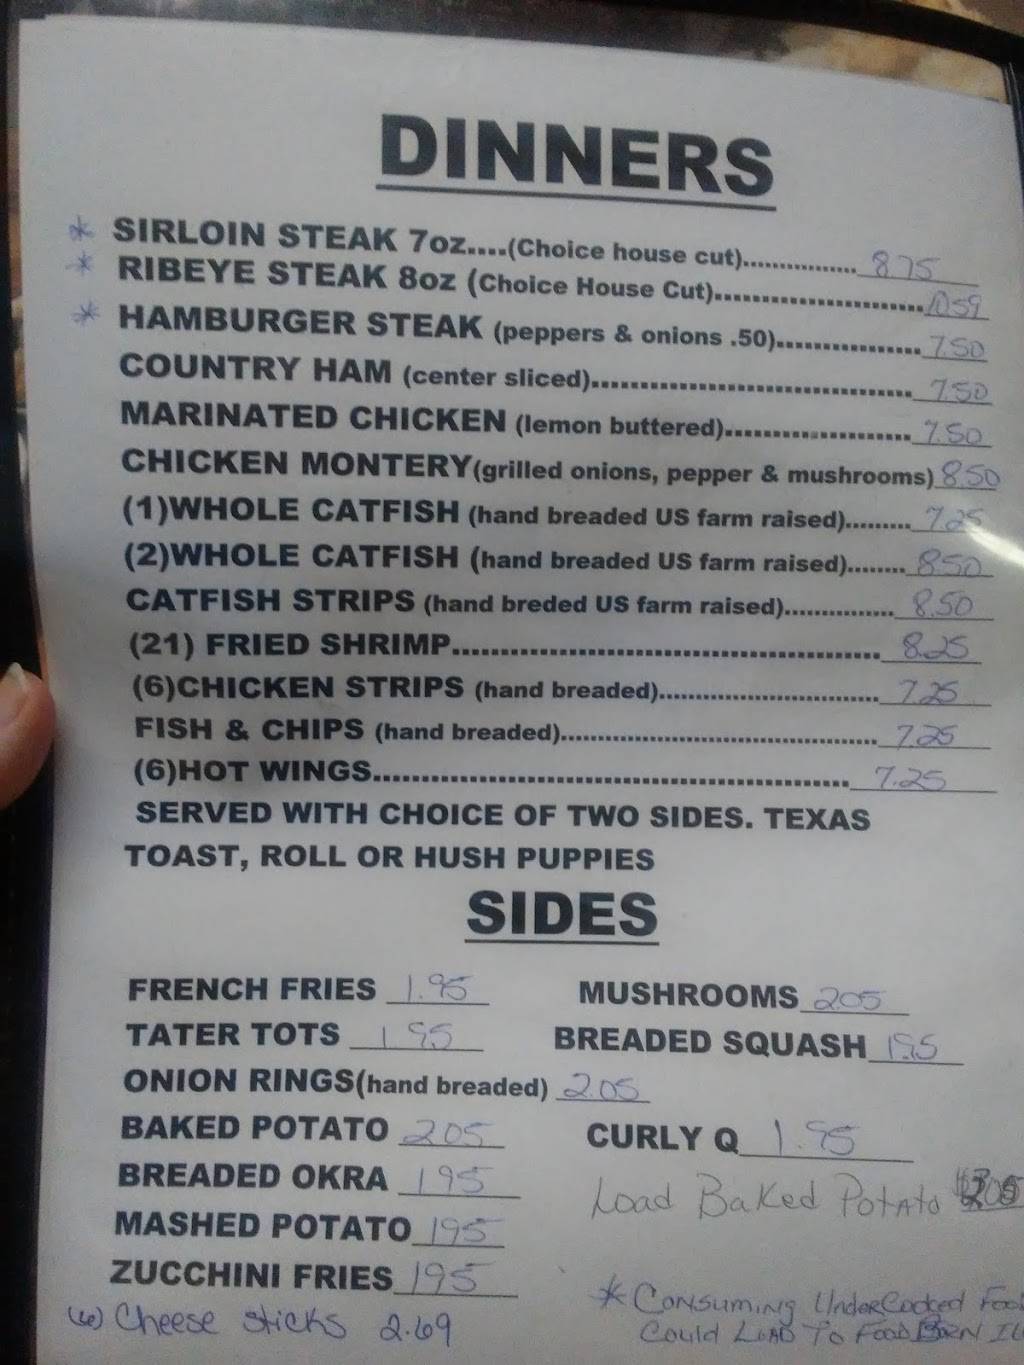 DINNERS
* SIRLOIN STEAK 7oz....(Choice house cut)................ 8.75
* RIBEYE STEAK 8oz (Choice House Cut)........................ 10.59
* HAMBURGER STEAK (peppers & onions .50)................ 7.50
COUNTRY HAM (center sliced)..................................... 7.50
MARINATED CHICKEN (lemon buttered)..................... 7.50
CHICKEN MONTERY(grilled onions, pepper & mushrooms) 8.50
(1)WHOLE CATFISH (hand breaded US farm raised)......... 7.25
(2)WHOLE CATFISH (hand breaded US farm raised)........ 8.50
CATFISH STRIPS (hand breded US farm raised)............... 8.50
(21) FRIED SHRIMP................................................ 8.25
(6)CHICKEN STRIPS (hand breaded)............................. 7.25
FISH & CHIPS (hand breaded)......................................... 7.25
(6)HOT WINGS..................................................... 7.25
SERVED WITH CHOICE OF TWO SIDES. TEXAS
TOAST, ROLL OR HUSH PUPPIES
SIDES
FRENCH FRIES 1.95 MUSHROOMS 2.05
TATER TOTS 1.95 BREADED SQUASH 1.95
ONION RINGS(hand breaded) 2.05
BAKED POTATO 2.05 CURLY Q 1.95
BREADED OKRA 1.95 Load Baked Potato
MASHED POTATO 1.95
ZUCCHINI FRIES 1.95
(6) Cheese sticks 2.69
* Consuming UnderCooked
Could LEAD To FOOD BORN